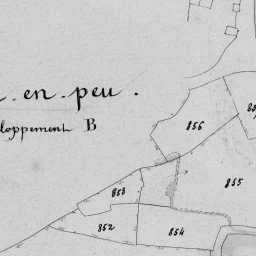 en-peu.
loppement B
856
853
855
852
854